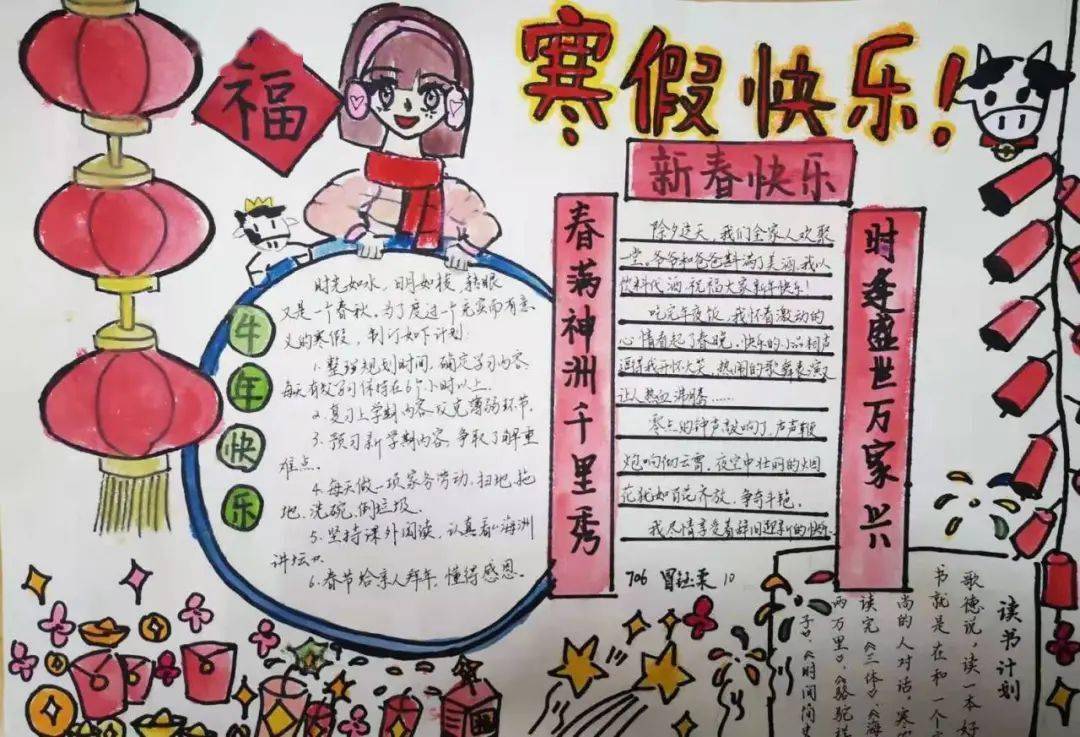 福
寒假快乐！
新春快乐
春满神洲千里秀
时逢盛世万家兴
牛年快乐
时光如水，日月如梭，转眼
又是一个春秋，为了度过一个充实而有意
义的寒假，制订如下计划：
1. 整强规划时间，确定学习内容，
每天有效学习保持在6个小时以上。
2. 复习上学期内容，攻克薄弱环节。
3. 预习新学期内容，争取了解重
难点。
4. 每天做一项家务劳动，扫地、拖
地、洗碗、倒垃圾。
5. 坚持课外阅读，认真看《海洲
讲坛》。
6. 春节给亲人拜年，懂得感恩。
除夕这天，我们全家人欢聚
一堂，爷爷和爸爸斟满了美酒，我以
饮料代酒，祝福大家新年快乐！
吃完年夜饭，我怀着激动的
心情看起了春晚，快乐的小品相声
逗得我开怀大笑，热闹的歌舞表演又
让人热血沸腾……
零点的钟声敲响了，声声鞭
炮响彻云霄，夜空中壮丽的烟
花犹如百花齐放，争奇斗艳。
我尽情享受着辞旧迎新的快乐。
706 冒钰柔 10
读书计划
歌德说，读一本好
书就是在和一个高
尚的人对话，寒
读完《三体》、《海
两万里》、《骆驼祥
子》、《时间简史